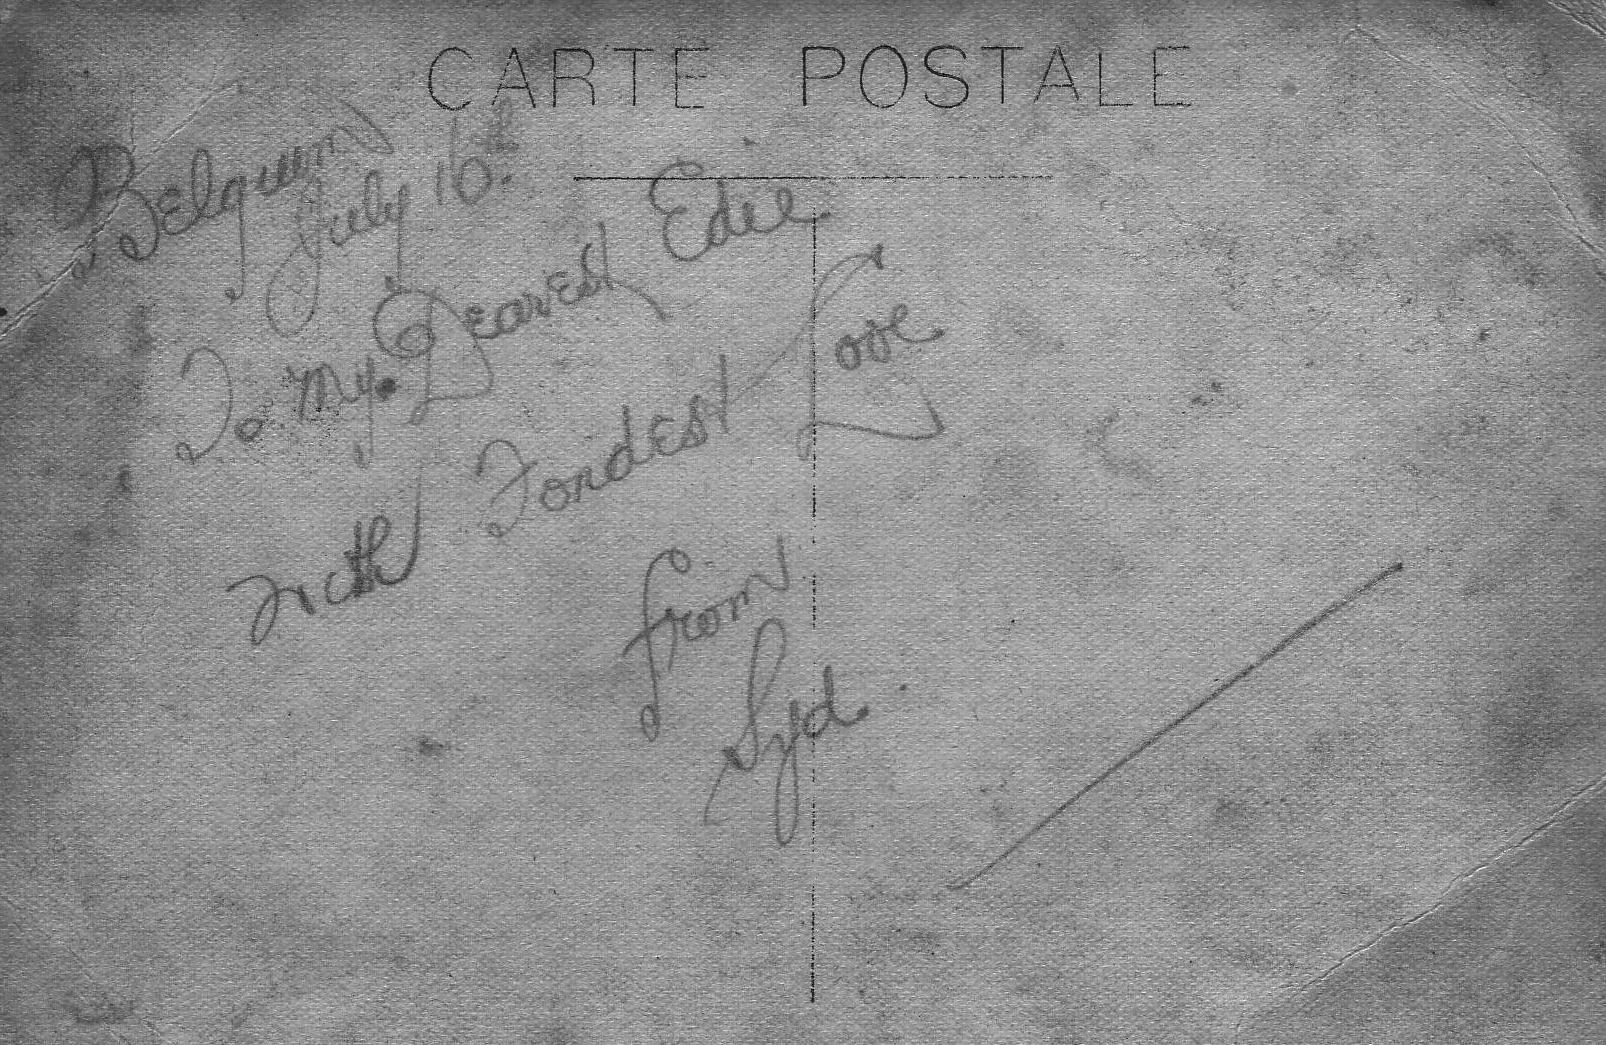 CARTE POSTALE
Belgium
July 16th.
To. My. Dearest Edie
With Fondest Love
from
Syd.